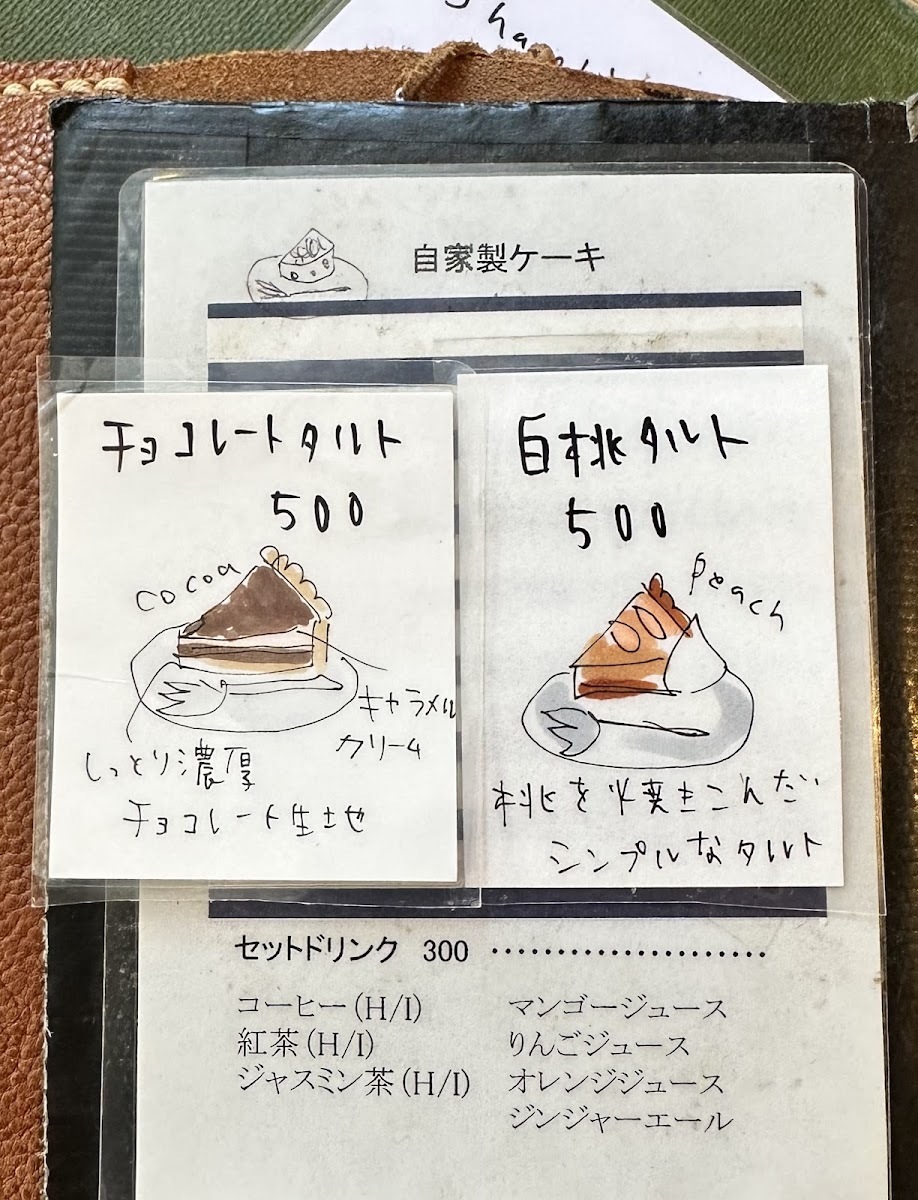 自家製ケーキ
チョコレートタルト
500
cocoa
キャラメル
クリーム
しっとり濃厚
チョコレート生地
白桃タルト
500
peach
桃を焼きこんだ
シンプルなタルト
セットドリンク 300 ·····················
コーヒー(H/I)
紅茶(H/I)
ジャスミン茶(H/I)
マンゴージュース
りんごジュース
オレンジジュース
ジンジャーエール